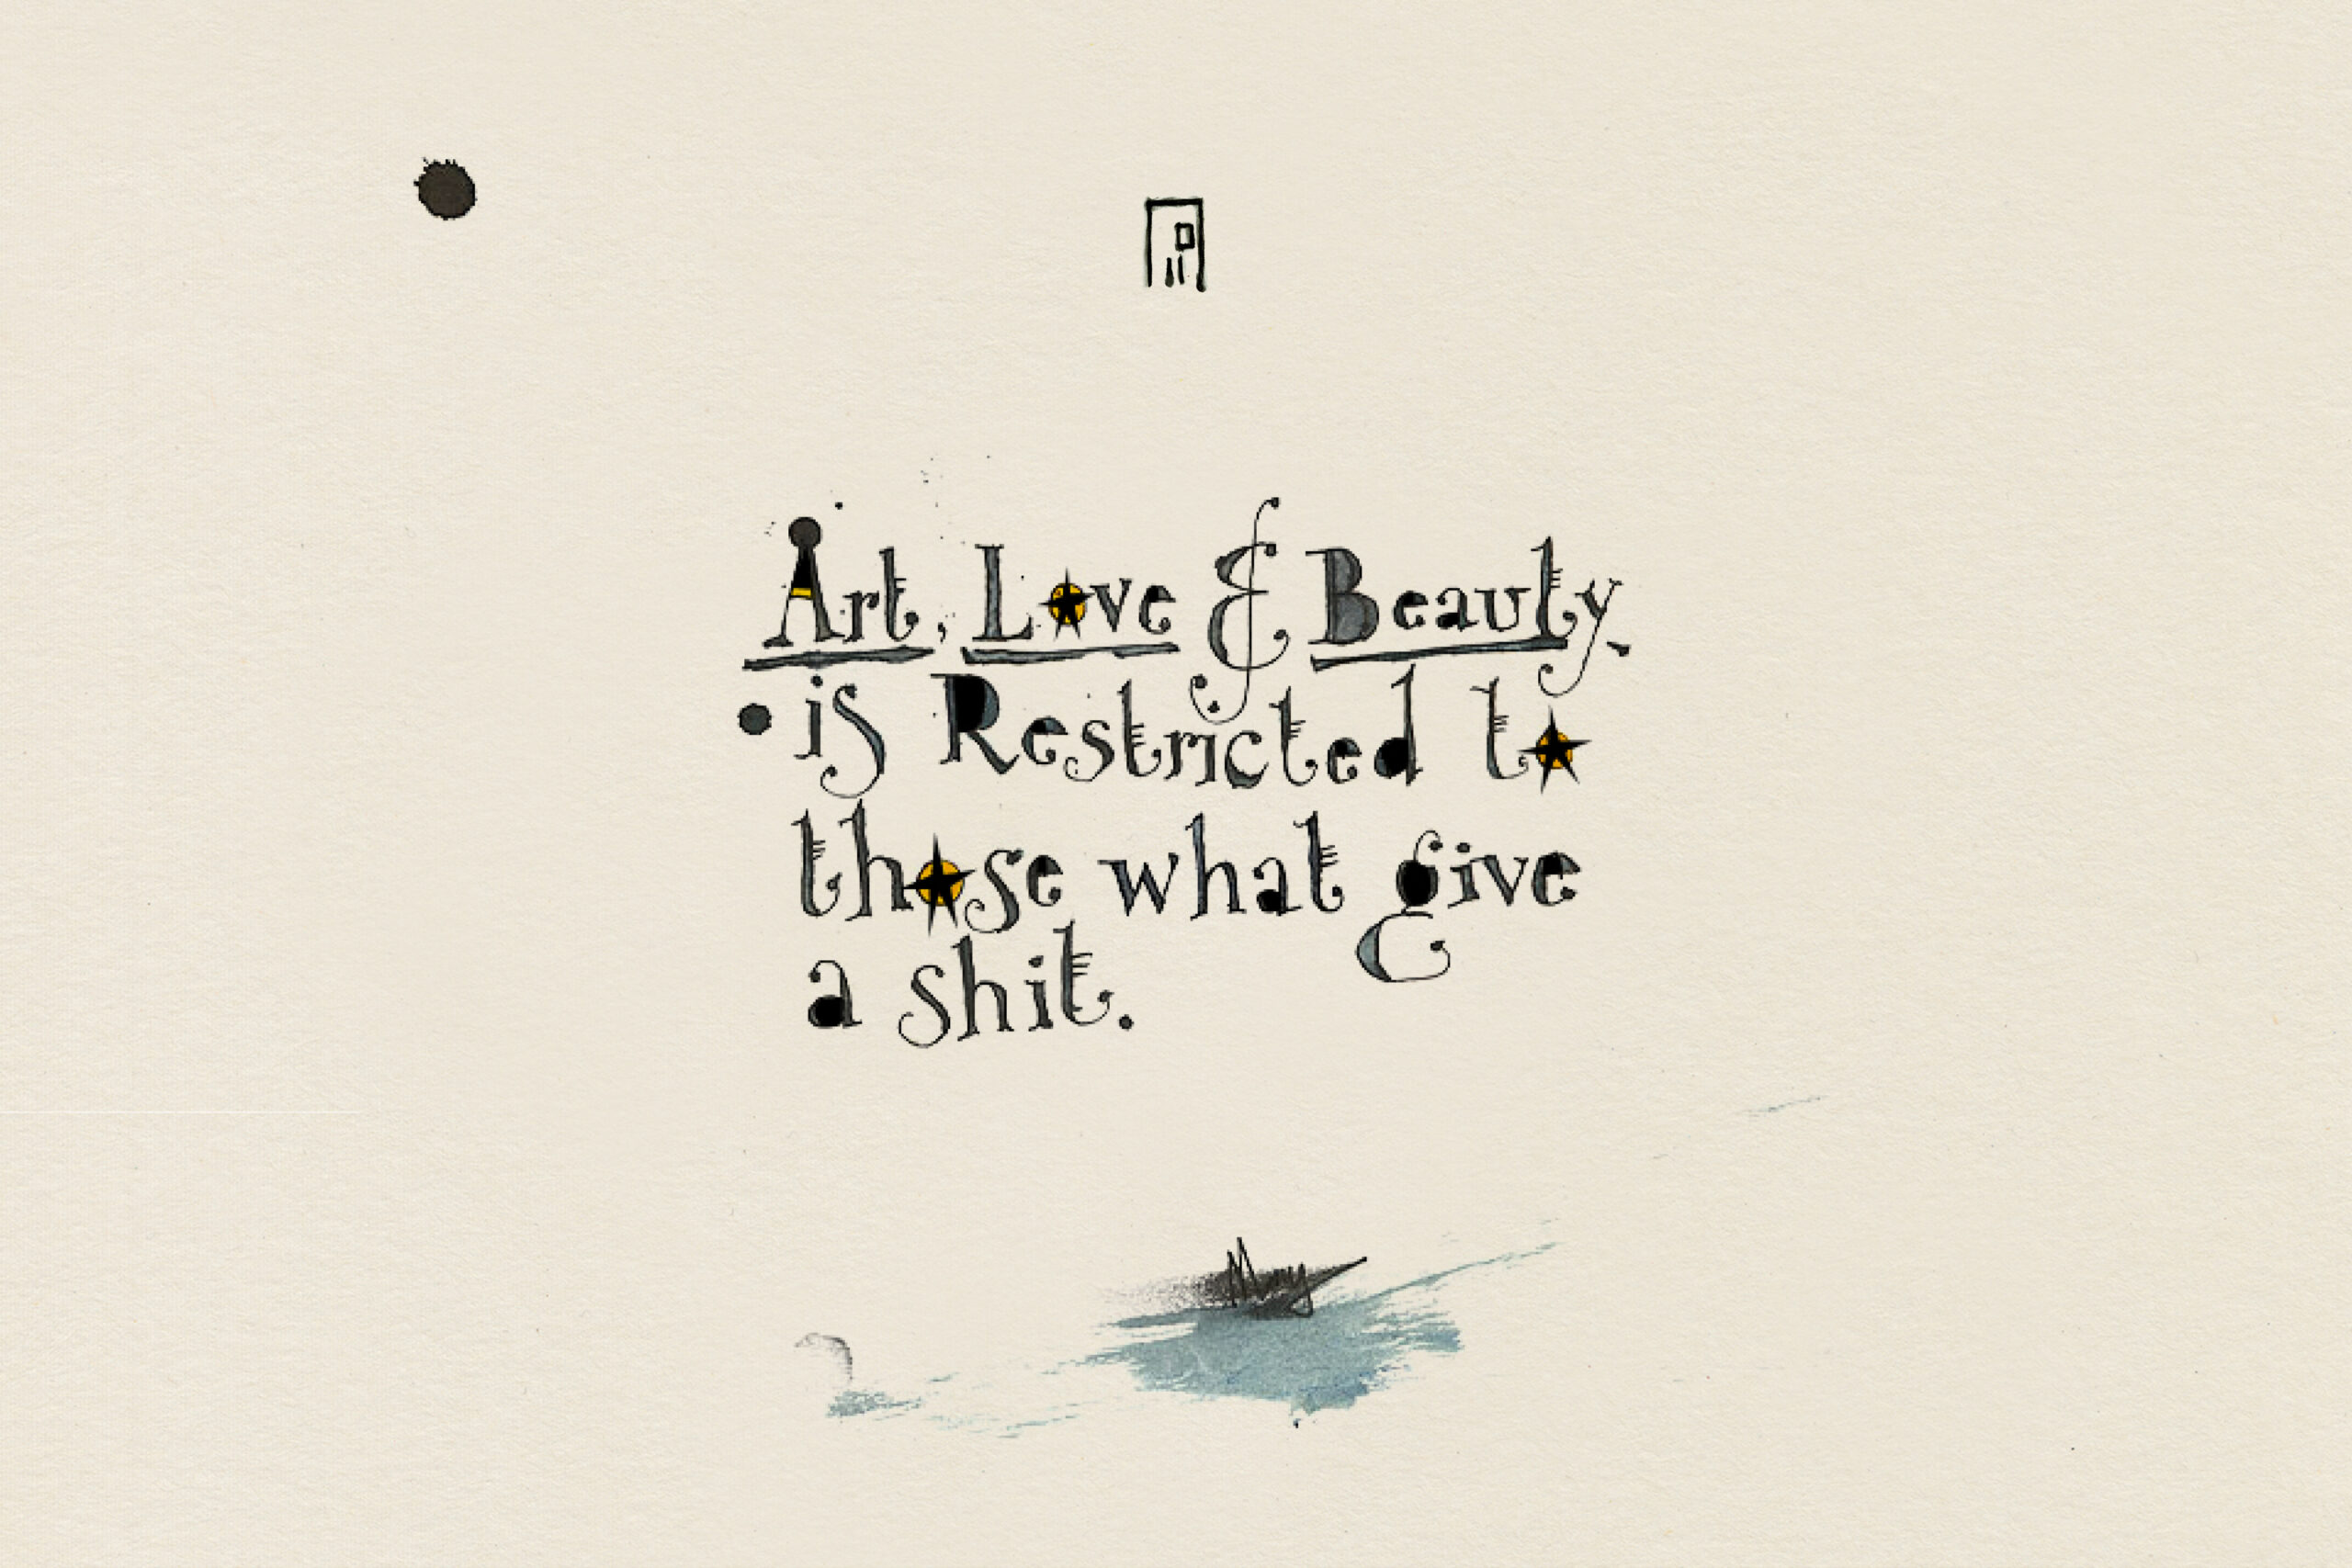 Art, Love & Beauty
is Restricted to
those what give
a shit.